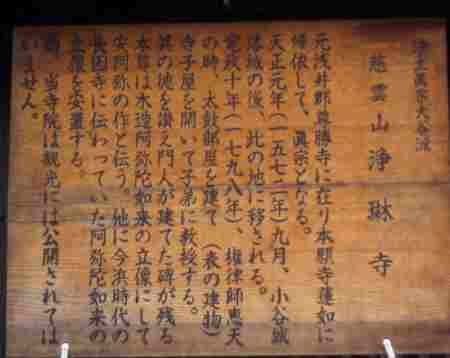 浄土真宗大谷派
慈雲山浄琳寺
元浅井郡尊勝寺に在り本願寺蓮如に
帰依して、眞宗となる。
天正元年(一五七三年)九月、小谷城
落城の後、此の地に移される。
寛政十年(一七九八年)、権律師恵天
の時、太鼓部屋を建て(表の建物)
寺子屋を開いて子弟に教授する。
其の徳を讃え門人が建てた碑が残る
本尊は木造阿弥陀如来の立像にして
安阿弥の作と伝う。他に今浜時代の
長因寺に伝わっていた阿弥陀如来の
立像を安置する。
尚、当寺院は観光には公開されては
いません。